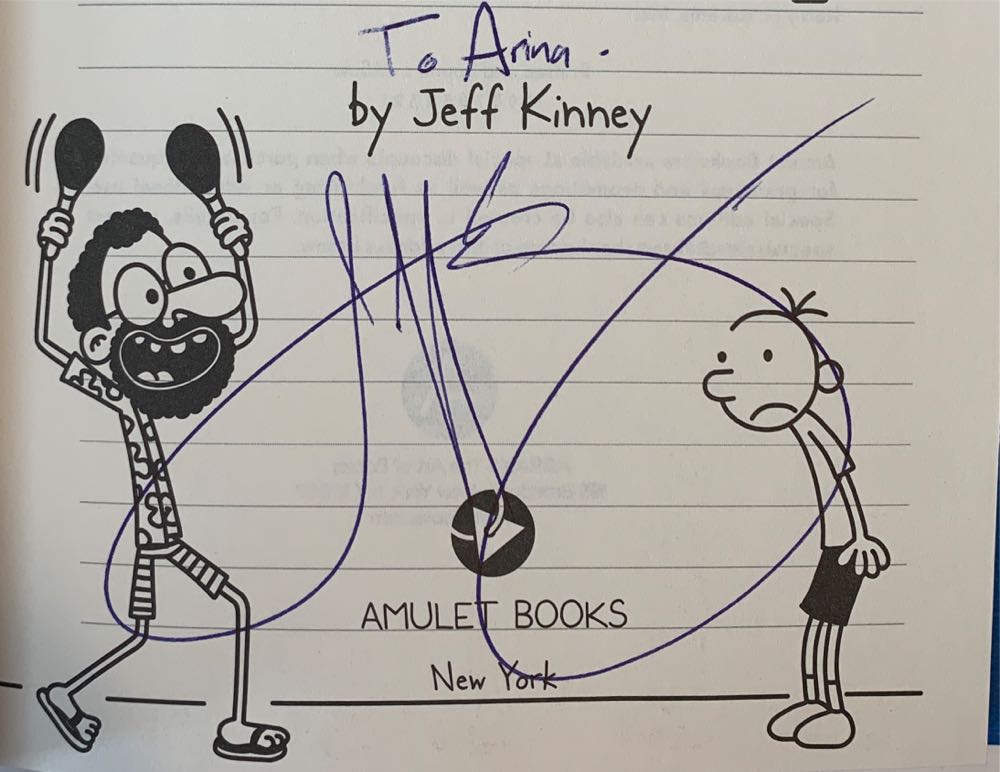 To Arina.
by Jeff Kinney
AMULET BOOKS
New York